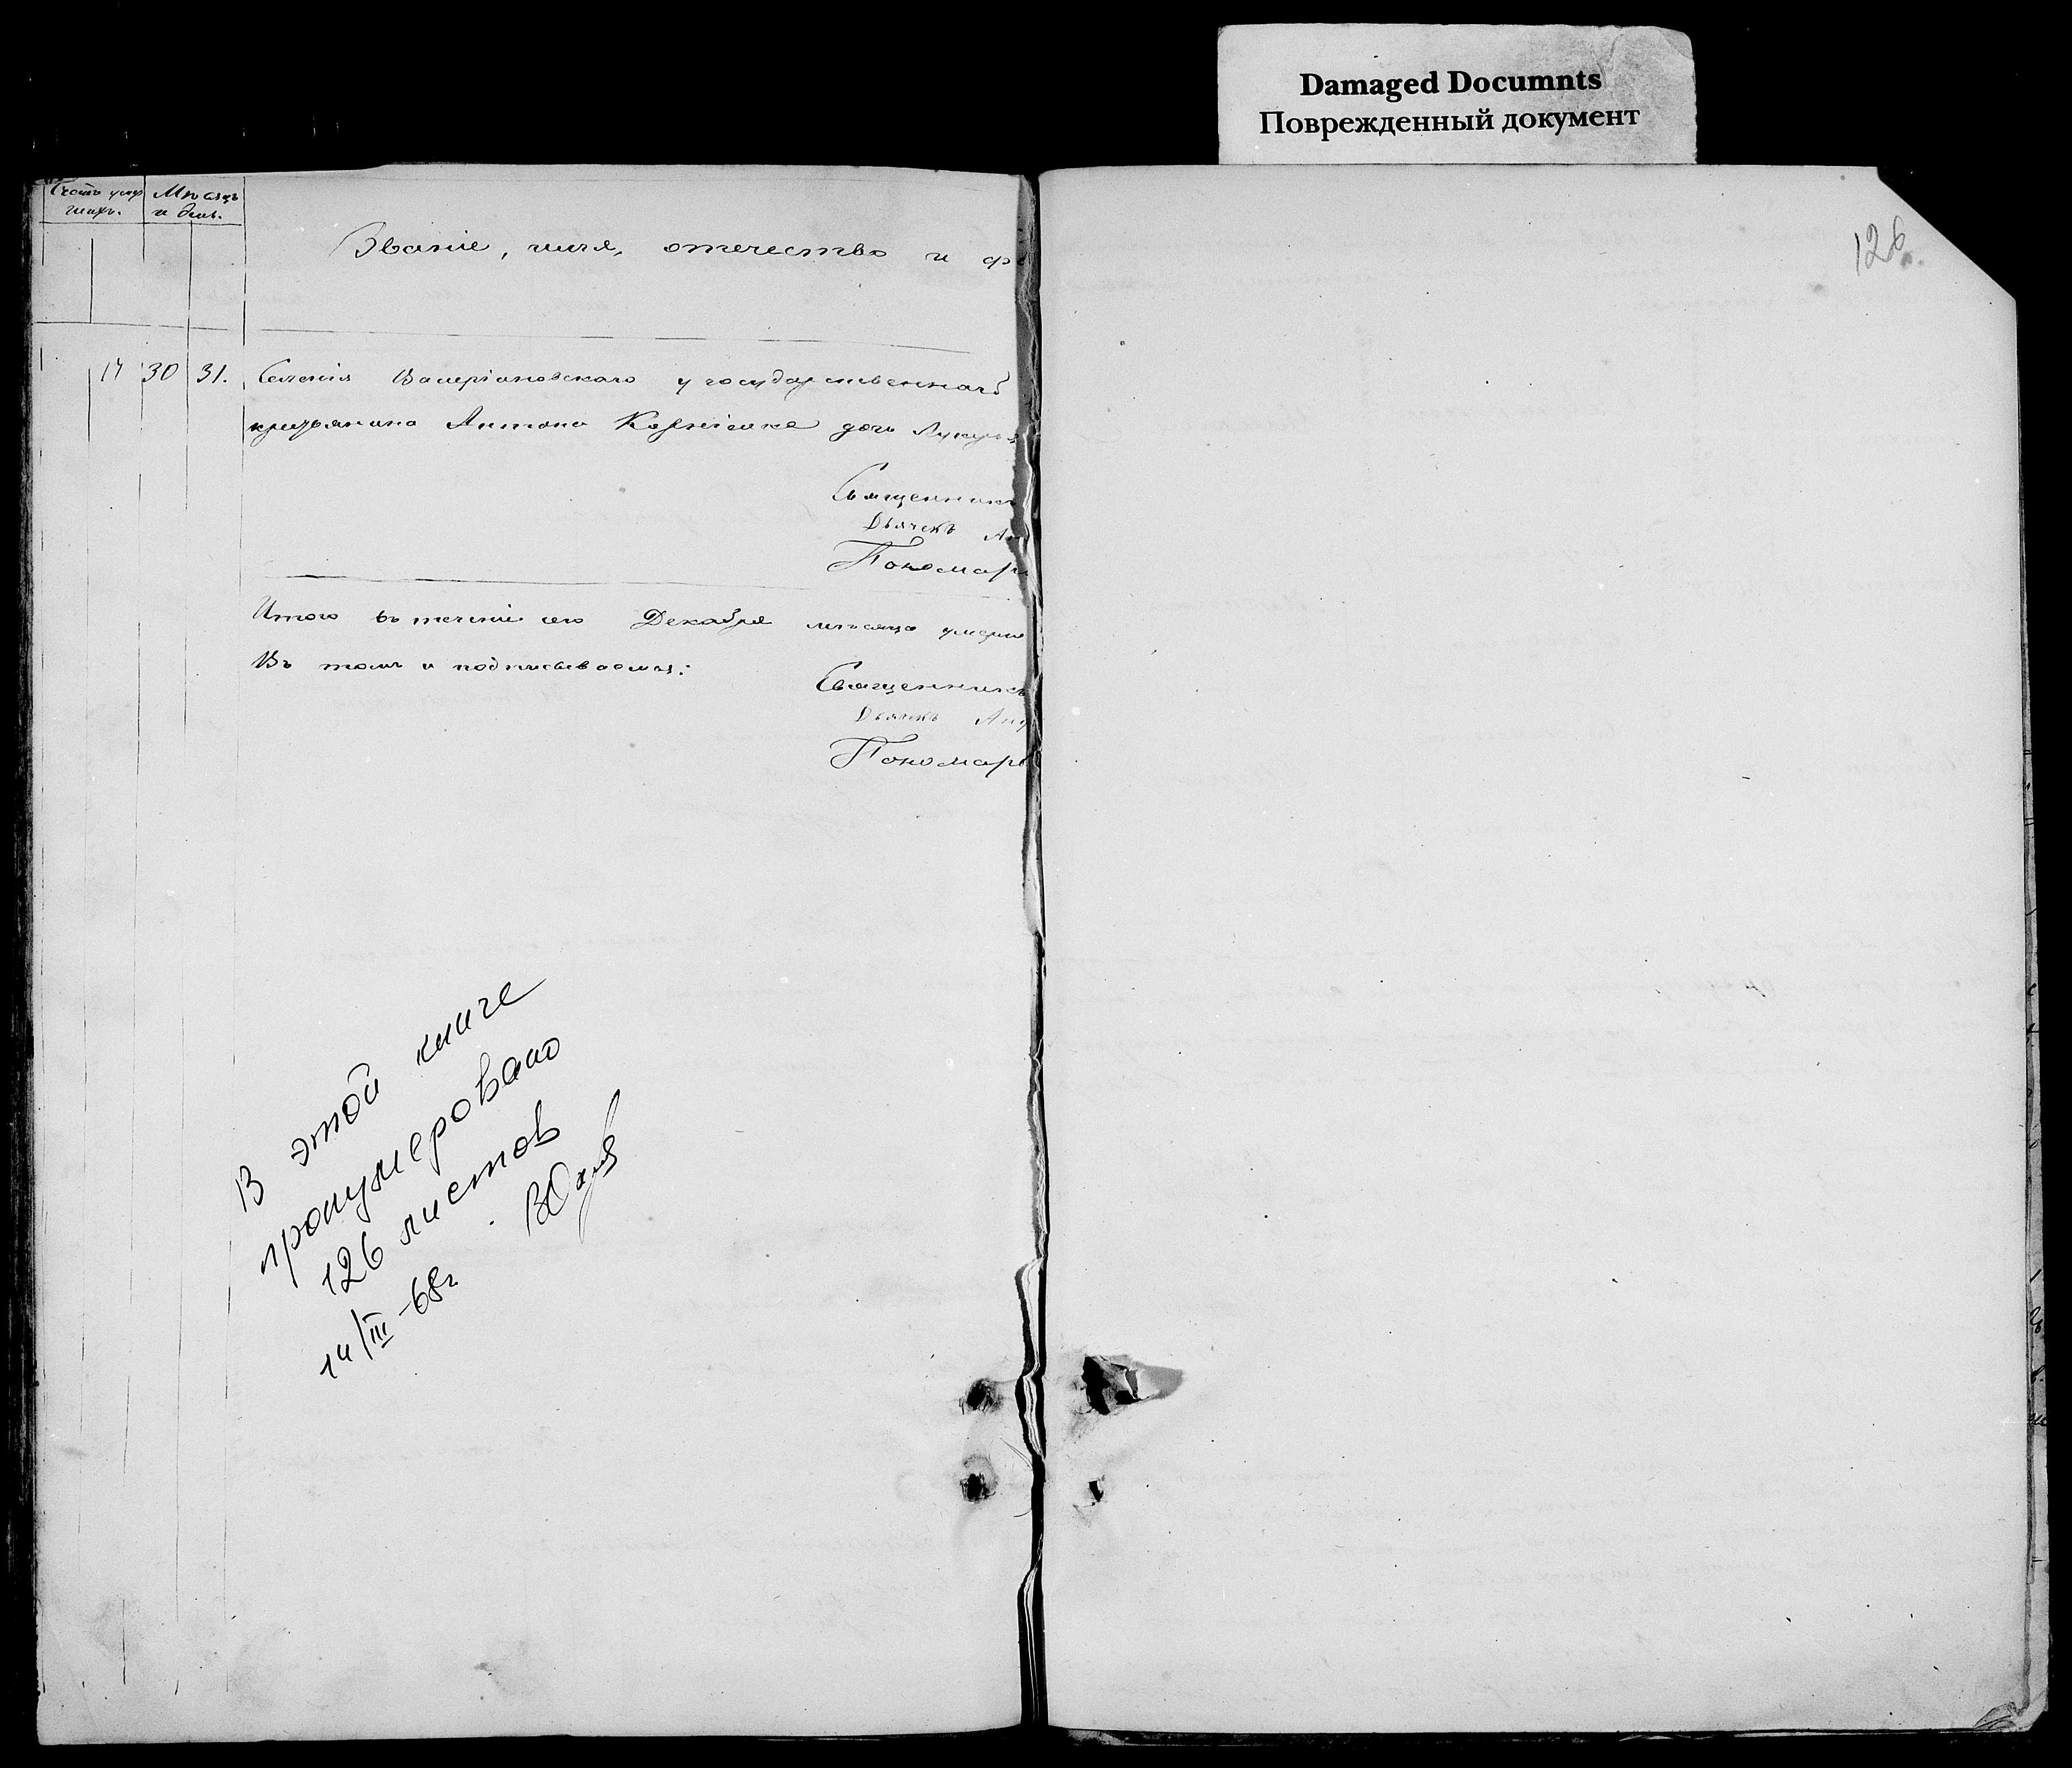 Damaged Documnts
Поврежденный документ
126
Счотъ умер
шихъ.
Мѣсяцъ
и день.
Званіе, имя, отечество и фа
17 30 31. Селенія Валеріановскаго у государственнаго
крестьянина Антона Корніенка дочь Лукерья
Священникъ
Дьячекъ Анд
Пономарь
Итого въ теченіе сего Декабря мѣсяца умерло
Въ томъ и подписываемся:
Священникъ
Дьячекъ Анд
Пономарь
В этой книге
пронумеровано
126 листов
14/III-68г.